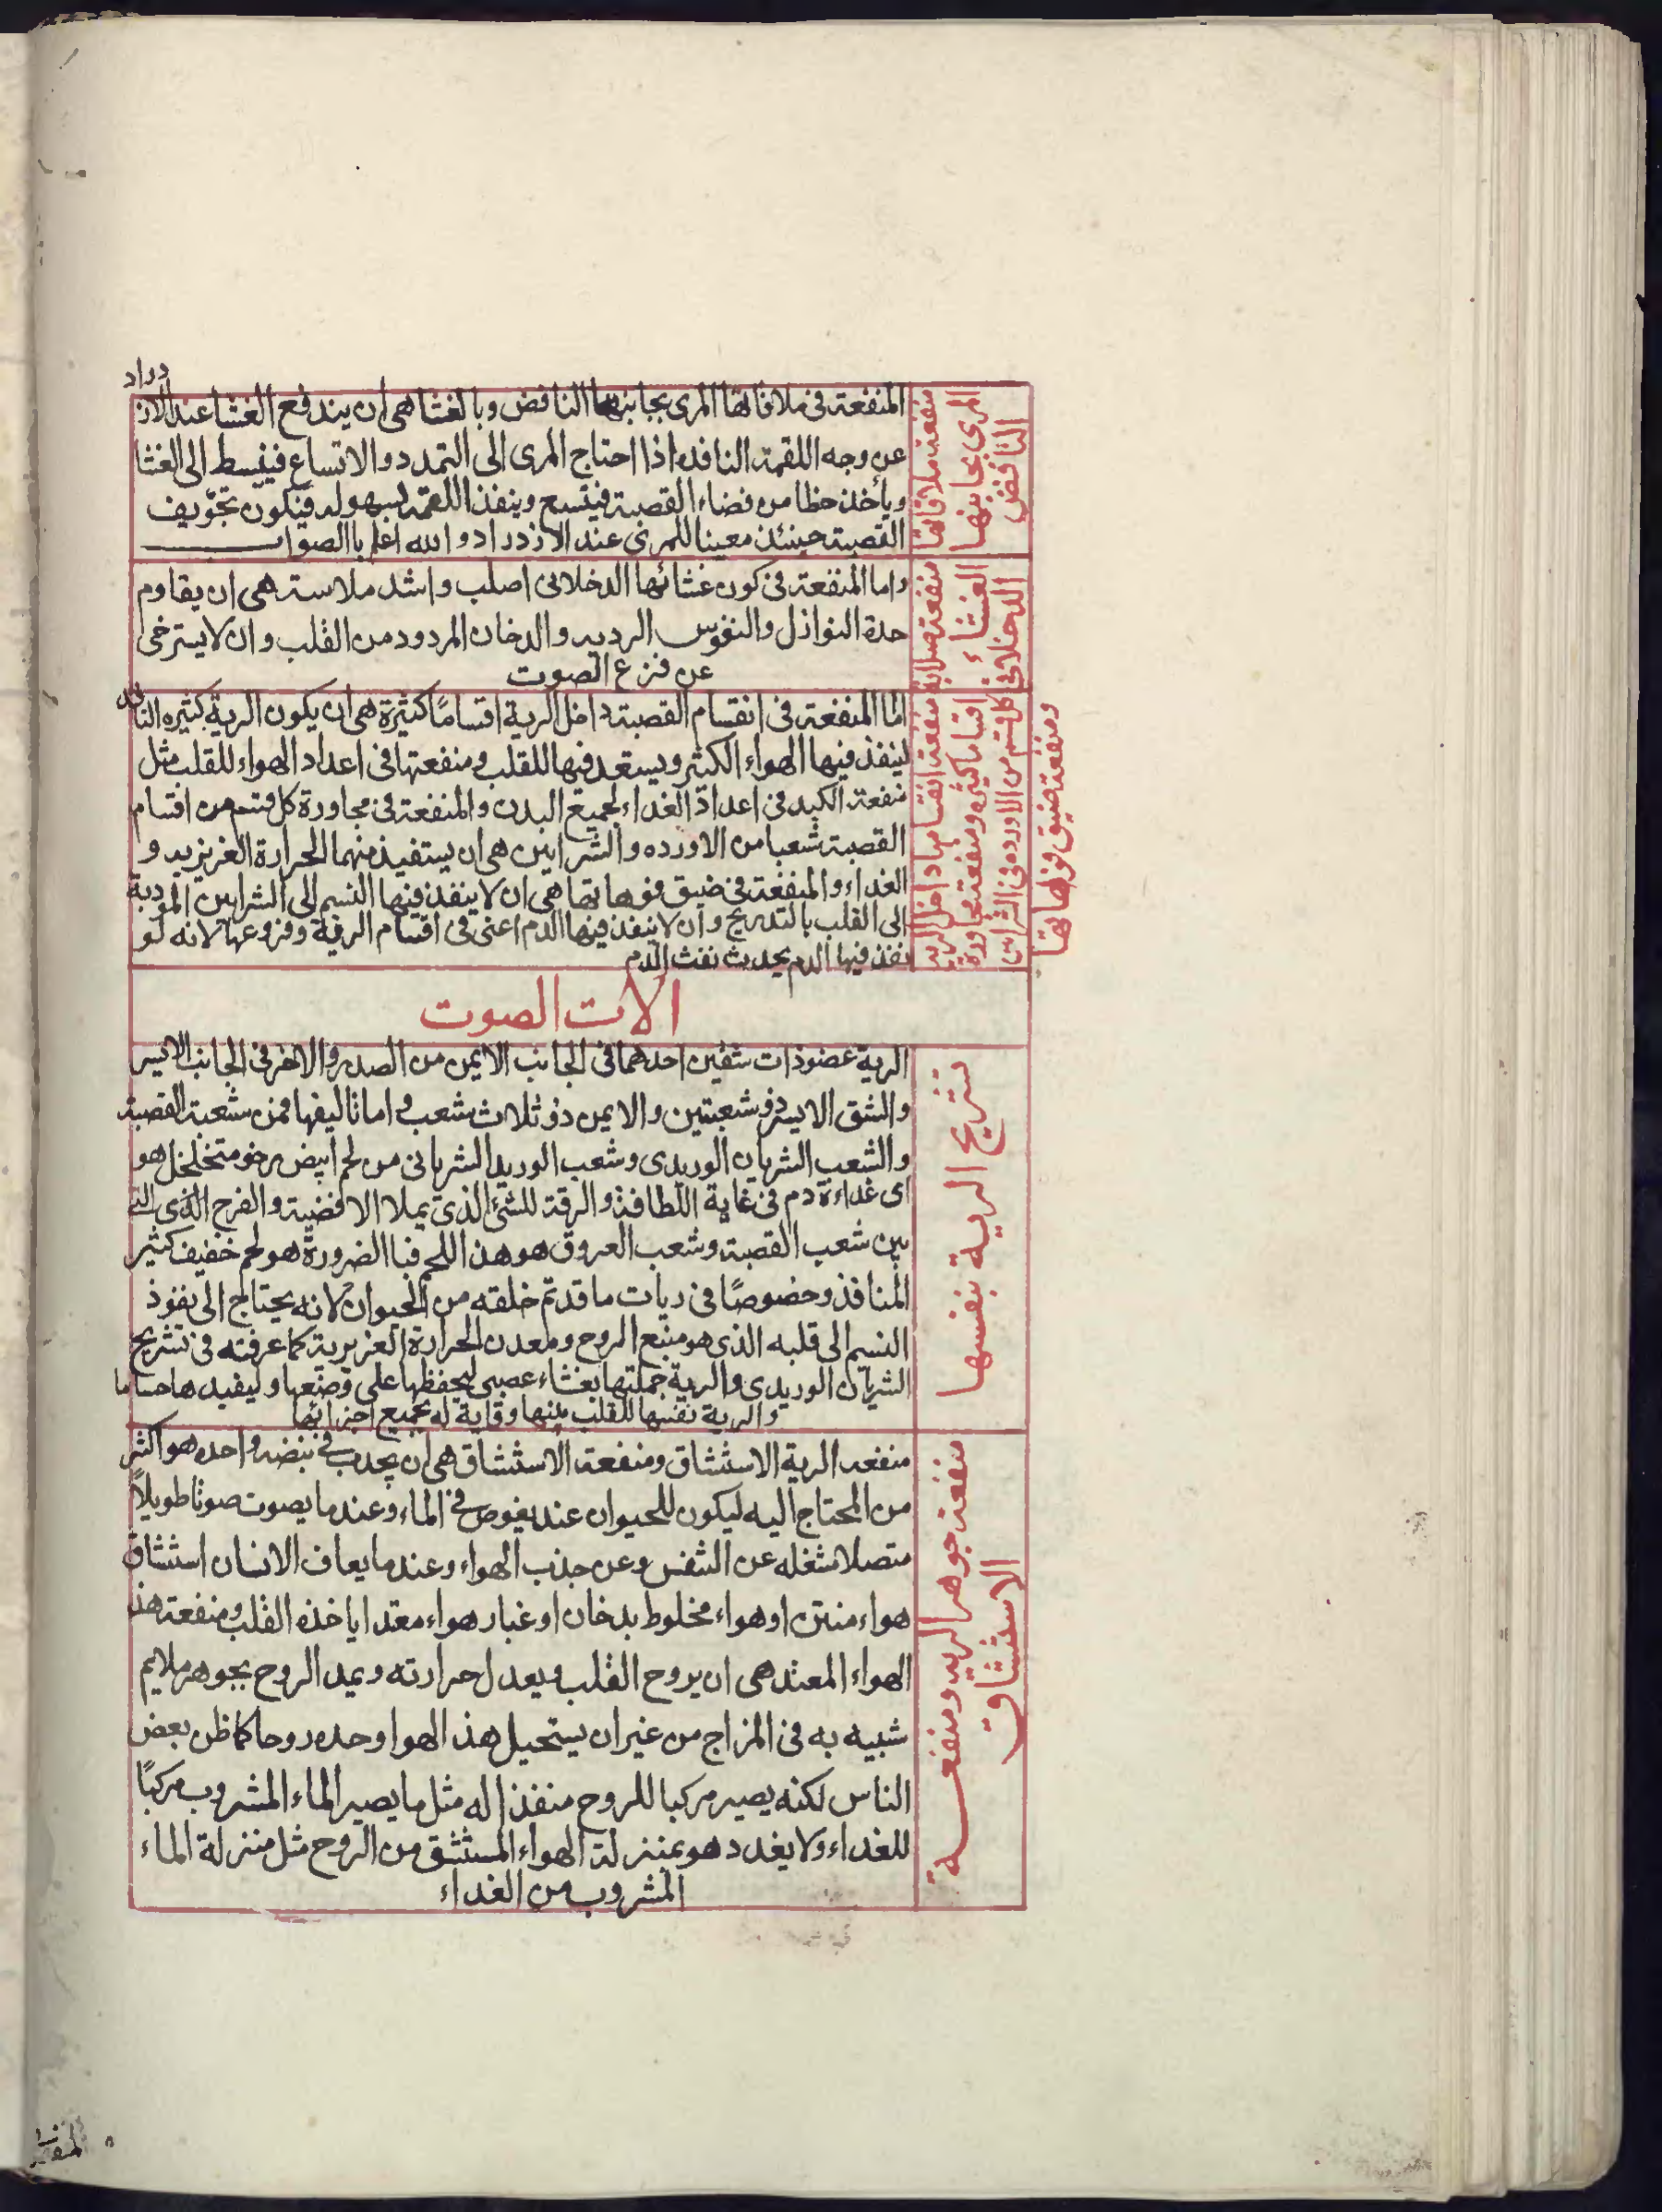 منفعة ملاقاتها
المرى بجانبها
الناقض
المنفعة فى ملاقاتها المرى بجانبها الناقض وبالغشا هى ان يندفع الغشا عند الازدراد
عن وجه اللقمة النافده اذا احتاج المرى الى التمدد والاتساع فينبسط الى الغشا
ويأخذ حظا من فضاء القصبة فيتسع وينفذ اللقمة بسهوله فيكون تجويف
القصبة حينئذ معينا للمرى عند الازدراد والله اعلم باالصواب
منفعة صلابة
الغشاء
الدخلانى
واما المنفعة فى كون غشائها الدخلانى اصلب واشد ملاسة هى ان يقاوم
حدة النوازل والنفوس الرديه والدخان المردود من القلب وان لا يسترخى
عن قرع الصوت
منفعة انقسامها داخل الريه
اقساما كثيره ومنفعة مجاورة
كل قسم من الاورده فى الشراين
ومنفعة ضيق فوهاتها
اما المنفعة فى انقسام القصبة داخل الرية اقسامًا كثيرة هى ان يكون الرية كثيره
لينفذ فيها الهواء الكثير ويستعد فيها للقلب ومنفعتها فى اعداد الهواء للقلب مثل
منفعة الكبد فى اعداد الغداء لجميع البدن والمنفعة فى مجاورة كل قسم من اقسام
القصبة شعبا من الاورده والشرايين هى ان يستفيد منهما الحرارة الغريزيه و
الغداء والمنفعة فى ضيق فوهاتها هى ان لا ينفذ فيها النسيم الى الشرايين المؤدية
الى القلب بالتدريج وان لا ينفذ فيها الدم اعنى فى اقسام الرية وفروعها لانه لو
نفذ فيها الدم يحدث نفث الدم
الات الصوت
تشريح الرية بنفسها
الرية عضو ذات شقين احدهما فى الجانب الايمن من الصدر والاخر فى الجانب الايسر
والشق الايسر ذو شعبتين والايمن ذو ثلاث شعب واما تاليفها فمن شعبة القصبة
والشعب الشريان الوريدى وشعب الوريد الشريانى من لحم ابيض رخو متخلخل هو
اى غداءة دم فى غاية اللطافة والرقة للشئ الذى يملا الافضية والفرج الذى التى
بين شعب القصبة وشعب العروق هو هذا اللحم فبا الضرورة هو لحم خفيف كثير
المنافذ وخصوصًا فى ريات ما قد تم خلقته من الحيوان لانه يحتاج الى نفوذ
النسيم الى قلبه الذى هو منبع الروح ومعدن الحرارة الغريزية كما عرفته فى تشريح
الشريان الوريدى والرية جملتها بغشاء عصبى ليحفظها على وضعها وليفيدها حسا ما
والرية نفسها للقلب وقاية له بجميع اجزائها
منفعة جوهر الريه ومنفعـــة
الاستنشاق
منفعه الرية الاستنشاق ومنفعة الاستنشاق هى ان يجدب فى نبضه واحده هو اكثر
من المحتاج اليه ليكون للحيوان عند يغوص فى الماء وعند ما يصوت صوتا طويلاً
متصلا مشغله عن التنفس وعن جذب الهواء وعند ما يعاف الانسان استنشاق
هواء منتن او هواء مخلوط بدخان او غبار هواء معتدا ياخذه القلب ومنفعة هذ
الهواء المعتد هى ان يروح القلب ويعدل حرارته ويمد الروح بجوهر ملايم
شبيه به فى المزاج من غير ان يستحيل هذ الهوا وحده روحا كما ظن بعض
الناس لكنه يصير مركبا للروح منفذا له مثل ما يصير الماء المشروب مركبًا
للغداء ولا يغدد هو بمنزلة الهواء المستنشق من الروح مثل منزلة الماء
المشروب من الغداء